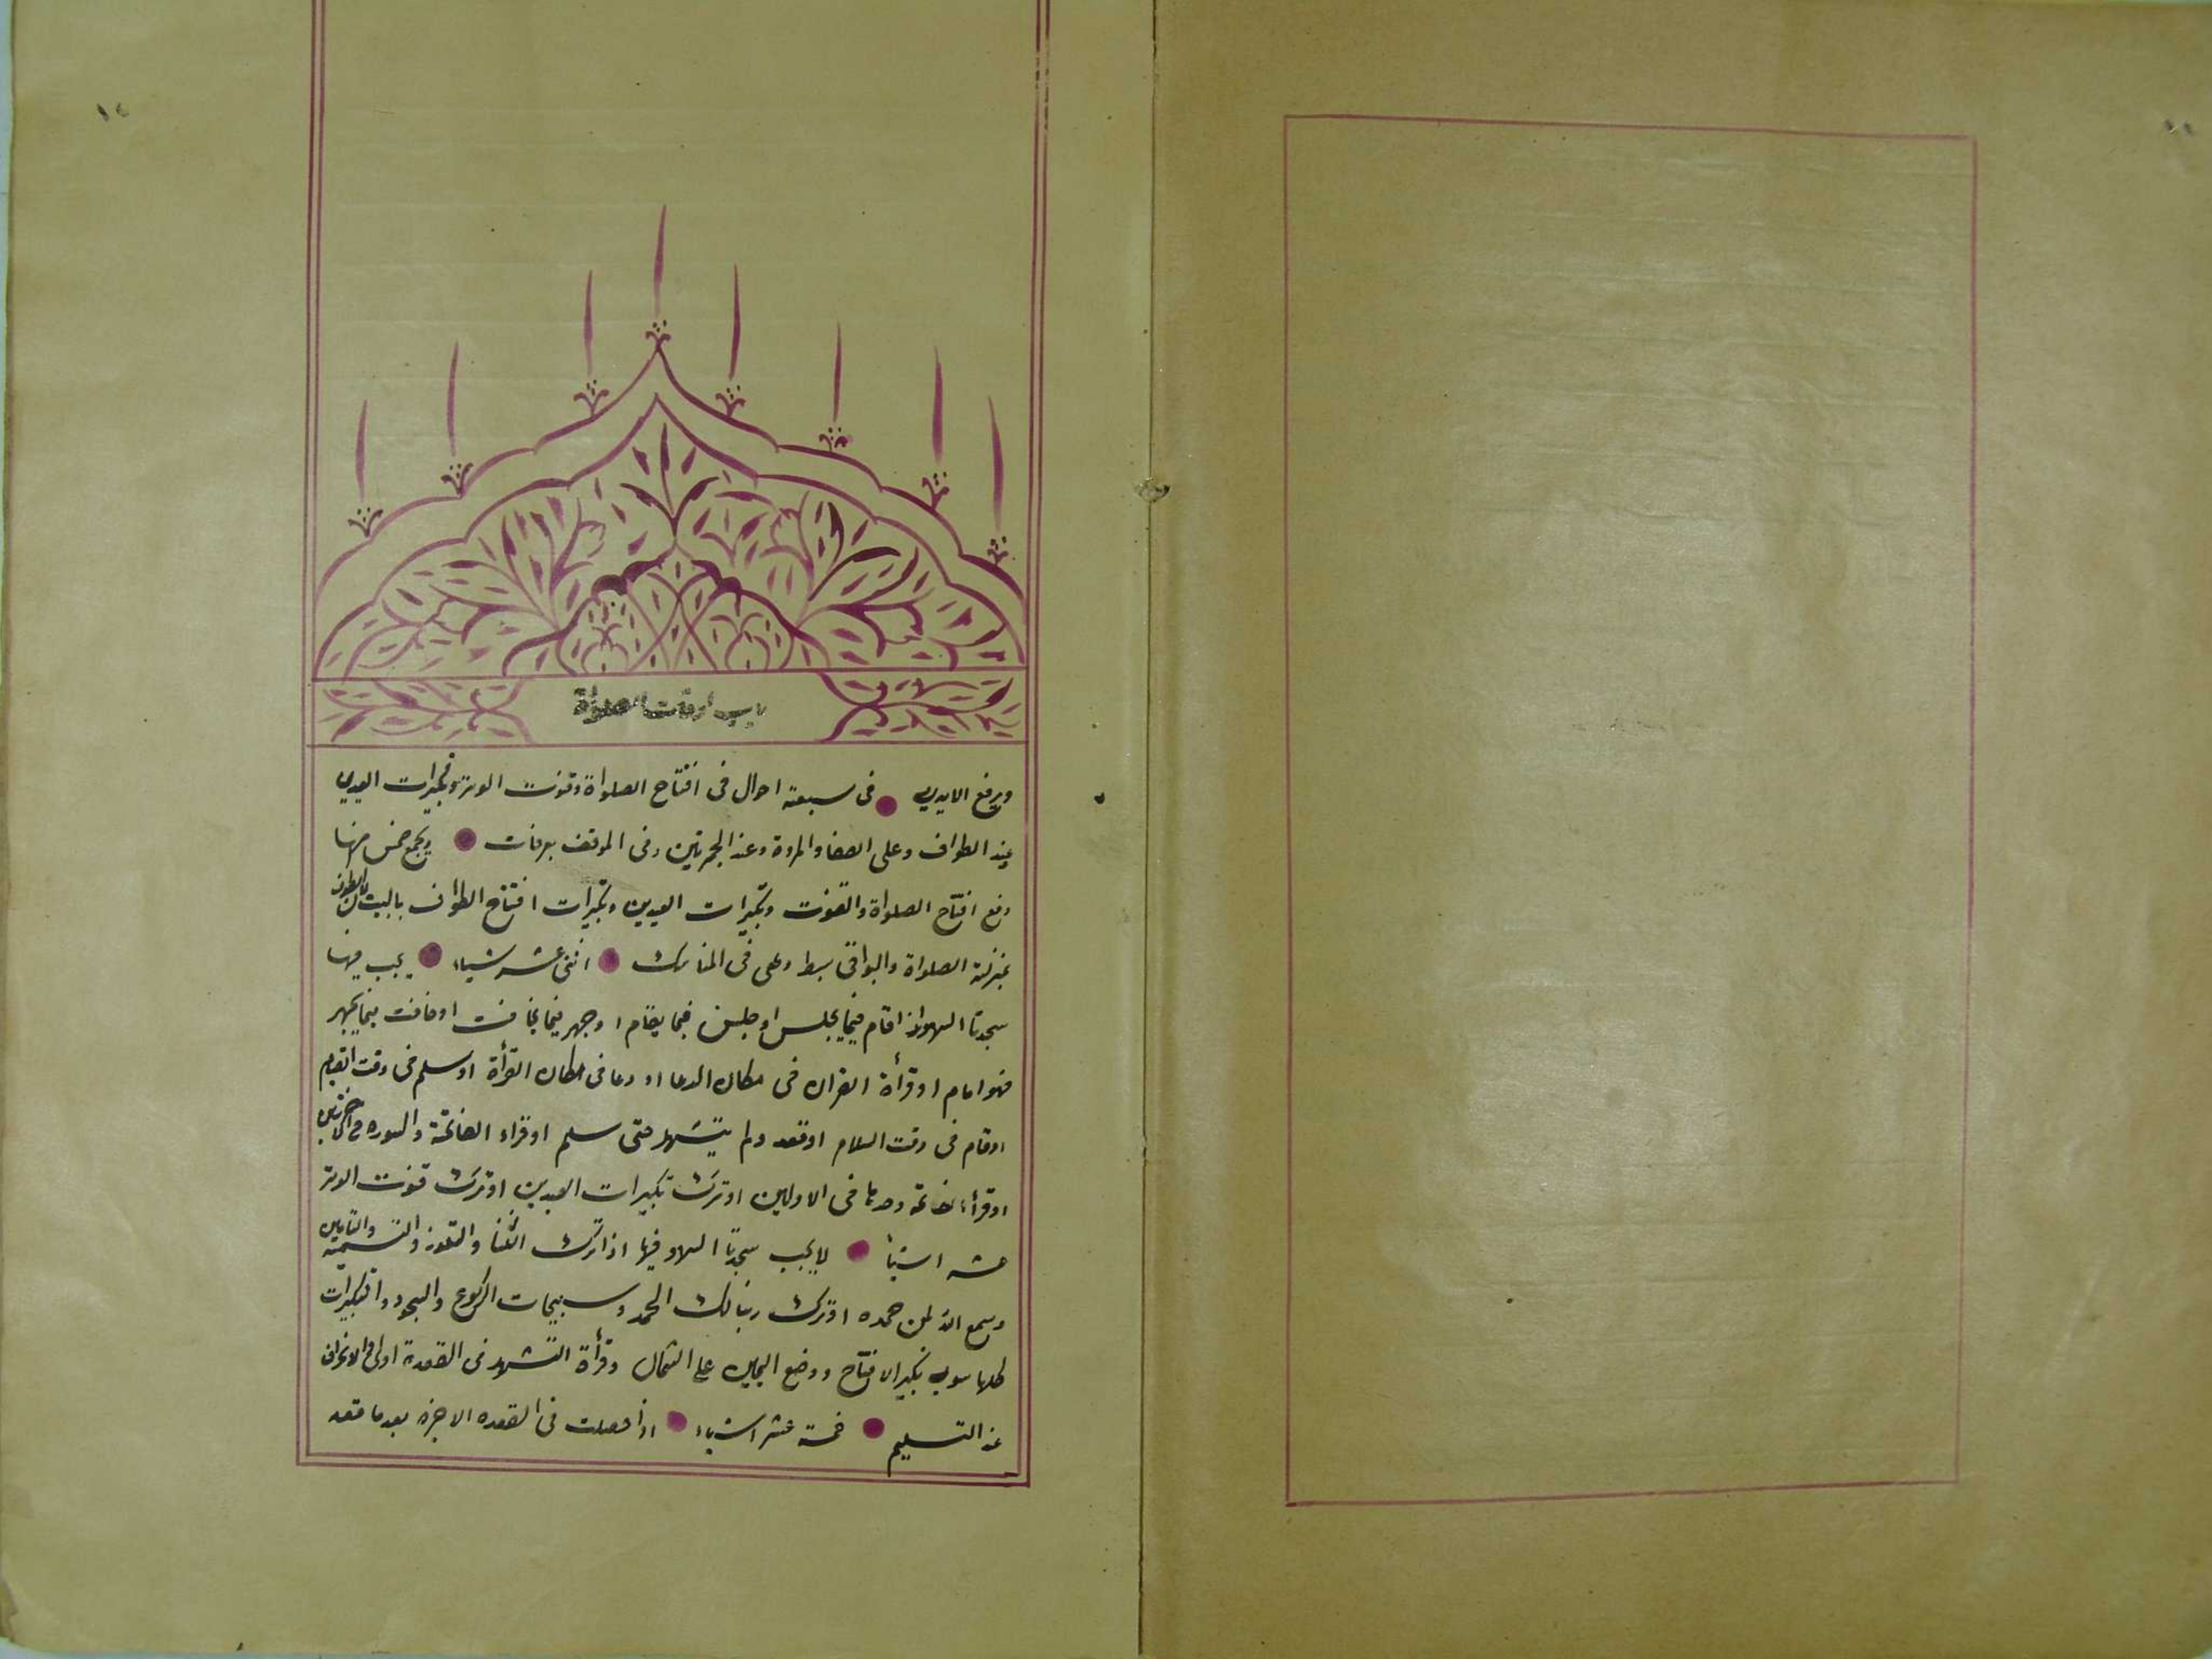 باب اوقات الصلواة
ويرفع الايدي في سبعة احوال في افتتاح الصلواة وقنوت الوتر وتكبيرات العيدين
عند الطواف وعلى الصفا والمروة وعند الجمرتين وفى الموقف بعرفات ويجمع خمس منها
رفع افتتاح الصلواة والقنوت وتكبيرات العيدين وتكبيرات افتتاح الطواف بالبيت لان الطواف
بمنزلة الصلواة والبواقى بسط وعلى فى المناسك اثنى عشر شياء يجب فيها
سجدتا السهو اذا قام فيما يجلس او جلس فيما يقام او جهر فيما يخافت او خافت فيما يجهر
فهو امام او قرأة القران فى مكان الدعا او دعا فى مكان القرأة او سلم فى وقت القيام
او قام فى وقت السلام او قعد ولم يتشهد حتى سلم او قراء الفاتحة والسوره فى الاخرتين
او قرأ الفاتحة وحدها فى الاوليين او ترك تكبيرات العيدين او ترك قنوت الوتر
عشر اشيأ لا يجب سجدتا السهو فيها اذا ترك الثنا والتعوذ والتسمية والتامين
وسمع الله لمن حمده او ترك ربنا لك الحمد وتسبيحات الركوع والسجود والتكبيرات
كلها سوى تكبير الافتتاح ووضع اليمين على الشمال وقرأة التشهد فى القعدة اولى والانحراف
عند التسليم خمسة عشر اشياء اذا حصلت فى القعده الاخيرة بعد ما قعد